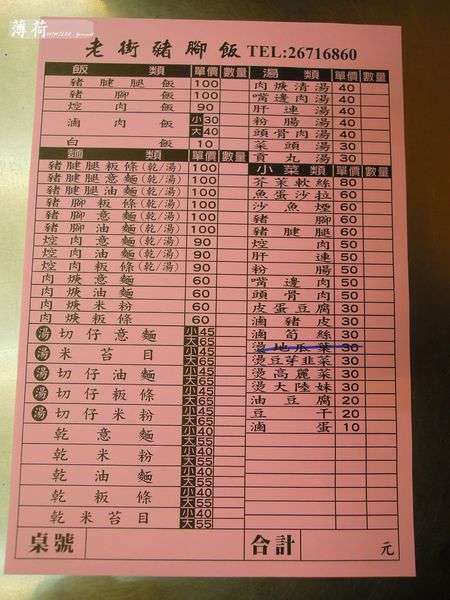 薄荷
老街豬腳飯 TEL:26716860
飯類 單價 數量
豬腱腿飯 100
豬腳飯 100
焢肉飯 90
滷肉飯 小30
大40
白飯 10
麵類 單價 數量
豬腱腿粄條(乾/湯) 100
豬腱腿意麵(乾/湯) 100
豬腱腿油麵(乾/湯) 100
豬腳粄條(乾/湯) 100
豬腳意麵(乾/湯) 100
豬腳油麵(乾/湯) 100
焢肉意麵(乾/湯) 90
焢肉油麵(乾/湯) 90
焢肉粄條(乾/湯) 90
肉焿意麵 60
肉焿油麵 60
肉焿米粉 60
肉焿粄條 60
湯 切仔意麵 小45
大65
湯 米苔目 小45
大65
湯 切仔油麵 小45
大65
湯 切仔粄條 小45
大65
湯 切仔米粉 小45
大65
乾意麵 小40
大55
乾米粉 小40
大55
乾油麵 小40
大55
乾粄條 小40
大55
乾米苔目 小40
大55
湯類 單價 數量
肉焿清湯 40
嘴邊肉湯 40
肝連湯 40
粉腸湯 40
頭骨肉湯 40
菜頭湯 30
貢丸湯 30
小菜類 單價 數量
芥菜軟絲 80
魚蛋沙拉 60
沙魚煙 60
豬腳 60
豬腱腿 60
焢肉 50
肝連 50
粉腸 50
嘴邊肉 50
頭骨肉 50
皮蛋豆腐 30
滷豬皮 30
滷筍絲 30
燙地瓜葉 30
燙豆芽韭菜 30
燙高麗菜 30
燙大陸妹 30
油豆腐 20
豆干 20
滷蛋 10
桌號 合計 元